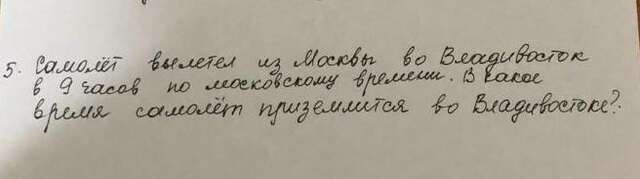 5. Самолёт вылетел из Москвы во Владивосток
в 9 часов по московскому времени. В какое
время самолёт приземлится во Владивостоке?